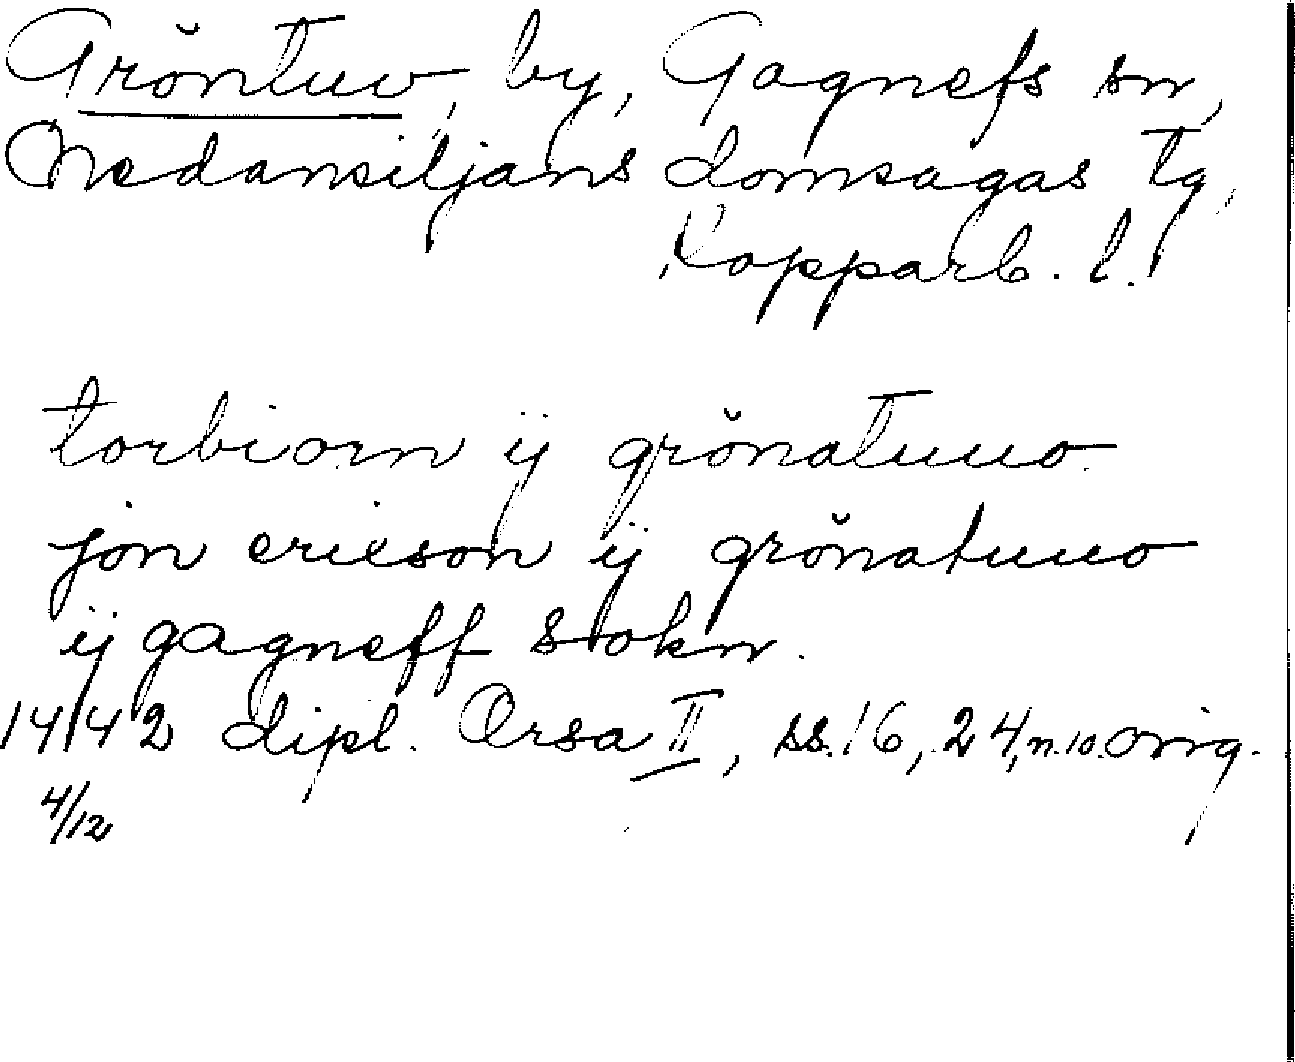 Gröntuv, by, Gagnefs sn,
Nedansiljans domsagas tg,
Kopparb. l.
torbiorn ij grönatuuo
jon ericson ij grönatuuo
ij gagneff sokn.
1442 dipl. Orsa II, ss. 16, 24, n. 10. orig.
4/12